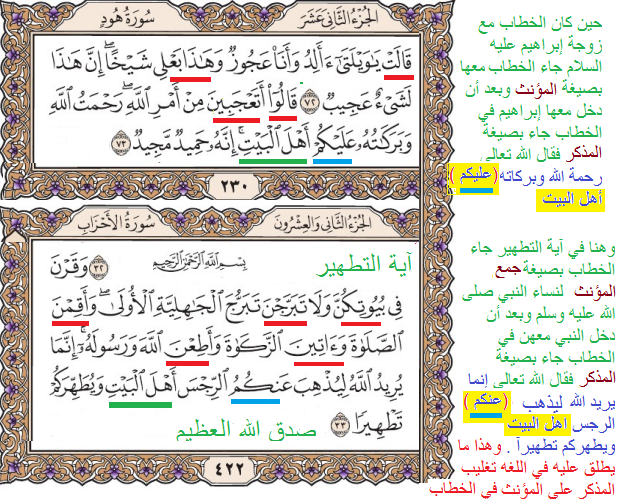 الجزء الثاني عشر
سورة هود
قَالَتْ يَٰوَيْلَتَىٰٓ ءَأَلِدُ وَأَنَا۠ عَجُوزٌ وَهَٰذَا بَعْلِى شَيْخًا ۖ إِنَّ هَٰذَا
لَشَىْءٌ عَجِيبٌ ٧٢ قَالُوٓا۟ أَتَعْجَبِينَ مِنْ أَمْرِ ٱللَّهِ ۖ رَحْمَتُ ٱللَّهِ
وَبَرَكَٰتُهُۥ عَلَيْكُمْ أَهْلَ ٱلْبَيْتِ ۚ إِنَّهُۥ حَمِيدٌ مَّجِيدٌ ٧٣
٢٣٠
الجزء الثاني والعشرون
سورة الأحزاب
آية التطهير
بِسْمِ ٱللَّهِ ٱلرَّحْمَٰنِ ٱلرَّحِيمِ
٣٢ وَقَرْنَ
فِى بُيُوتِكُنَّ وَلَا تَبَرَّجْنَ تَبَرُّجَ ٱلْجَٰهِلِيَّةِ ٱلْأُولَىٰ ۖ وَأَقِمْنَ
ٱلصَّلَوٰةَ وَءَاتِينَ ٱلزَّكَوٰةَ وَأَطِعْنَ ٱللَّهَ وَرَسُولَهُۥٓ ۚ إِنَّمَا
يُرِيدُ ٱللَّهُ لِيُذْهِبَ عَنكُمُ ٱلرِّجْسَ أَهْلَ ٱلْبَيْتِ وَيُطَهِّرَكُمْ
تَطْهِيرًا ٣٣
صدق الله العظيم
٤٢٢
حين كان الخطاب مع
زوجة إبراهيم عليه
السلام جاء الخطاب معها
بصيغة المؤنث وبعد أن
دخل معها إبراهيم في
الخطاب جاء بصيغة
المذكر فقال الله تعالى
رحمة الله وبركاته (عليكم )
أهل البيت
وهنا في آية التطهير جاء
الخطاب بصيغة جمع
المؤنث لنساء النبي صلى
الله عليه وسلم وبعد أن
دخل النبي معهن في
الخطاب جاء بصيغة
المذكر فقال الله تعالى إنما
يريد الله ليذهب (عنكم )
الرجس اهل البيت
ويطهركم تطهيرآ . وهذا ما
يطلق عليه في اللغه تغليب
المذكر على المؤنث في الخطاب